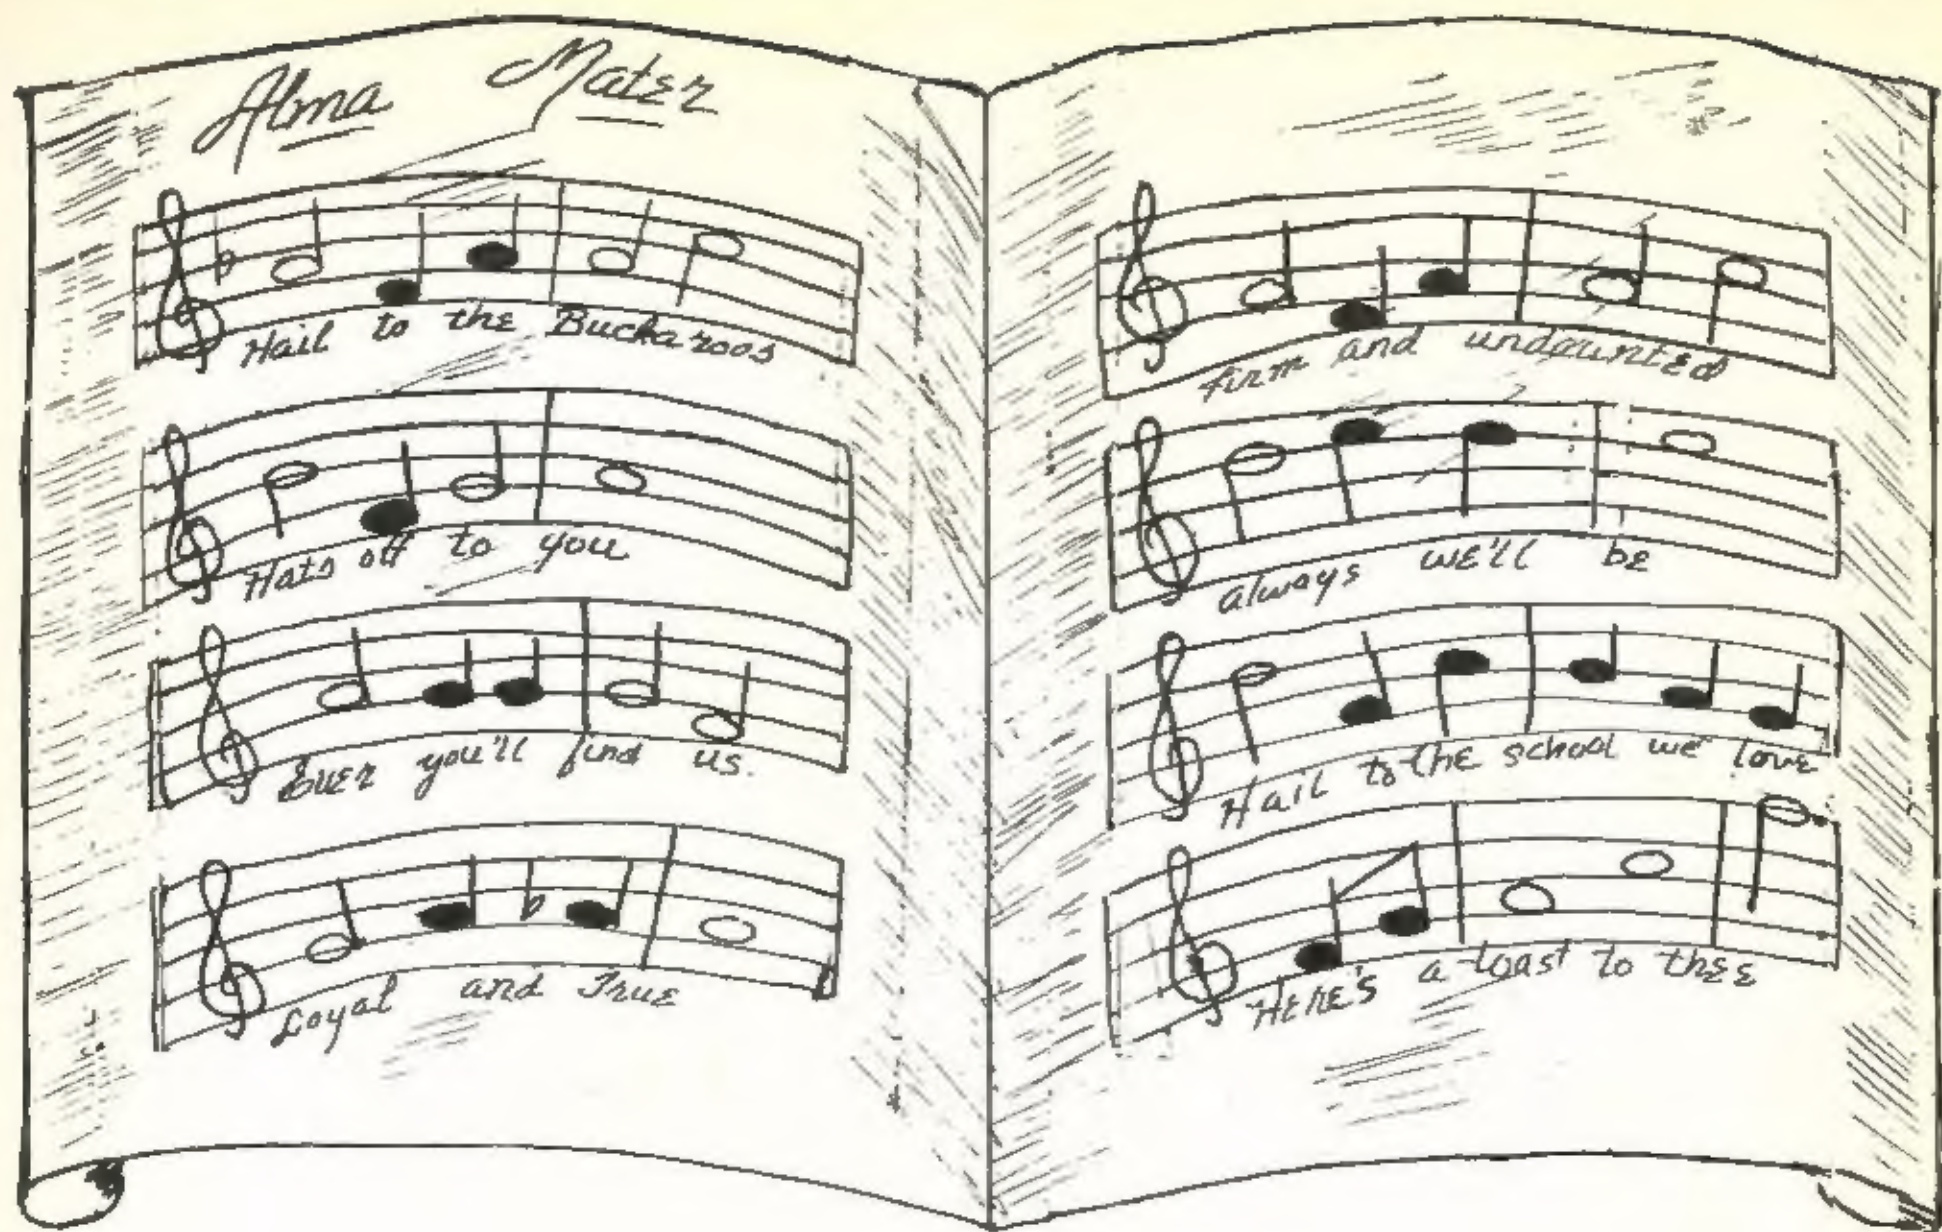 Alma Mater
Hail to the Buckaroos
Hats off to you
Ever you'll find us.
Loyal and True
firm and undaunted
always we'll be
Hail to the school we love
HERE'S a toast to thee